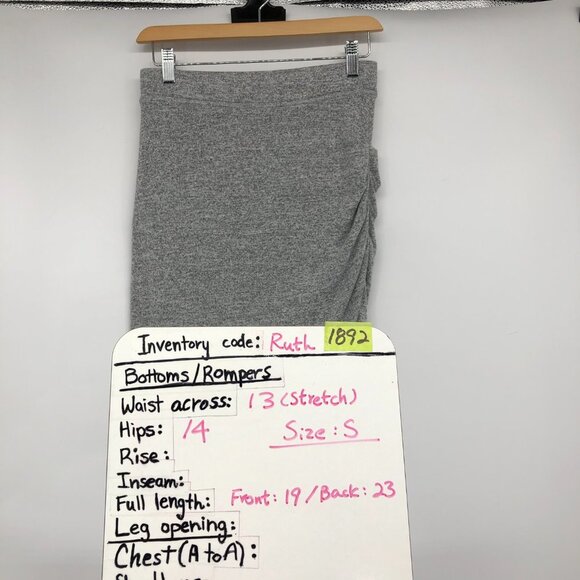 Inventory code: Ruth 1892
Bottoms/Rompers
Waist across: 13 (stretch)
Hips: 14 Size: S
Rise:
Inseam:
Full length: Front: 19 / Back: 23
Leg opening:
Chest (A to A):